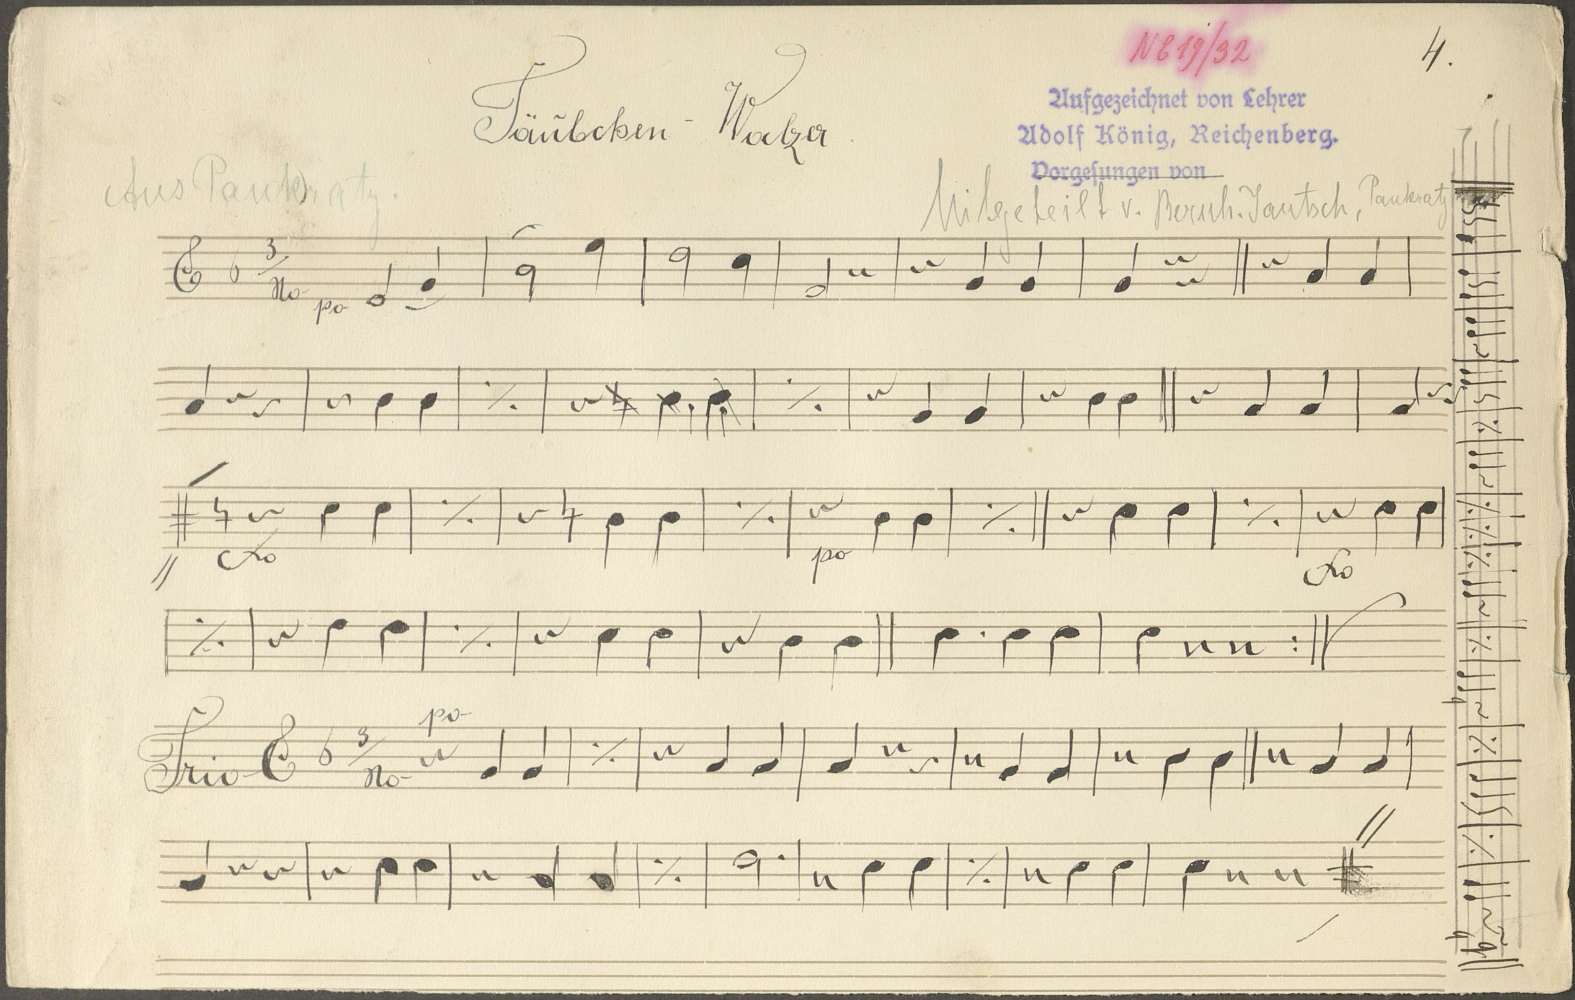 NE 19/32
4.
Täubchen - Walzer
Aufgezeichnet von Lehrer
Adolf König, Reichenberg.
Vorgesungen von
Aus Pankratz.
Mitgeteilt v. Bernh. Jantsch, Pankratz
3/
po
po
po
Trio
3/